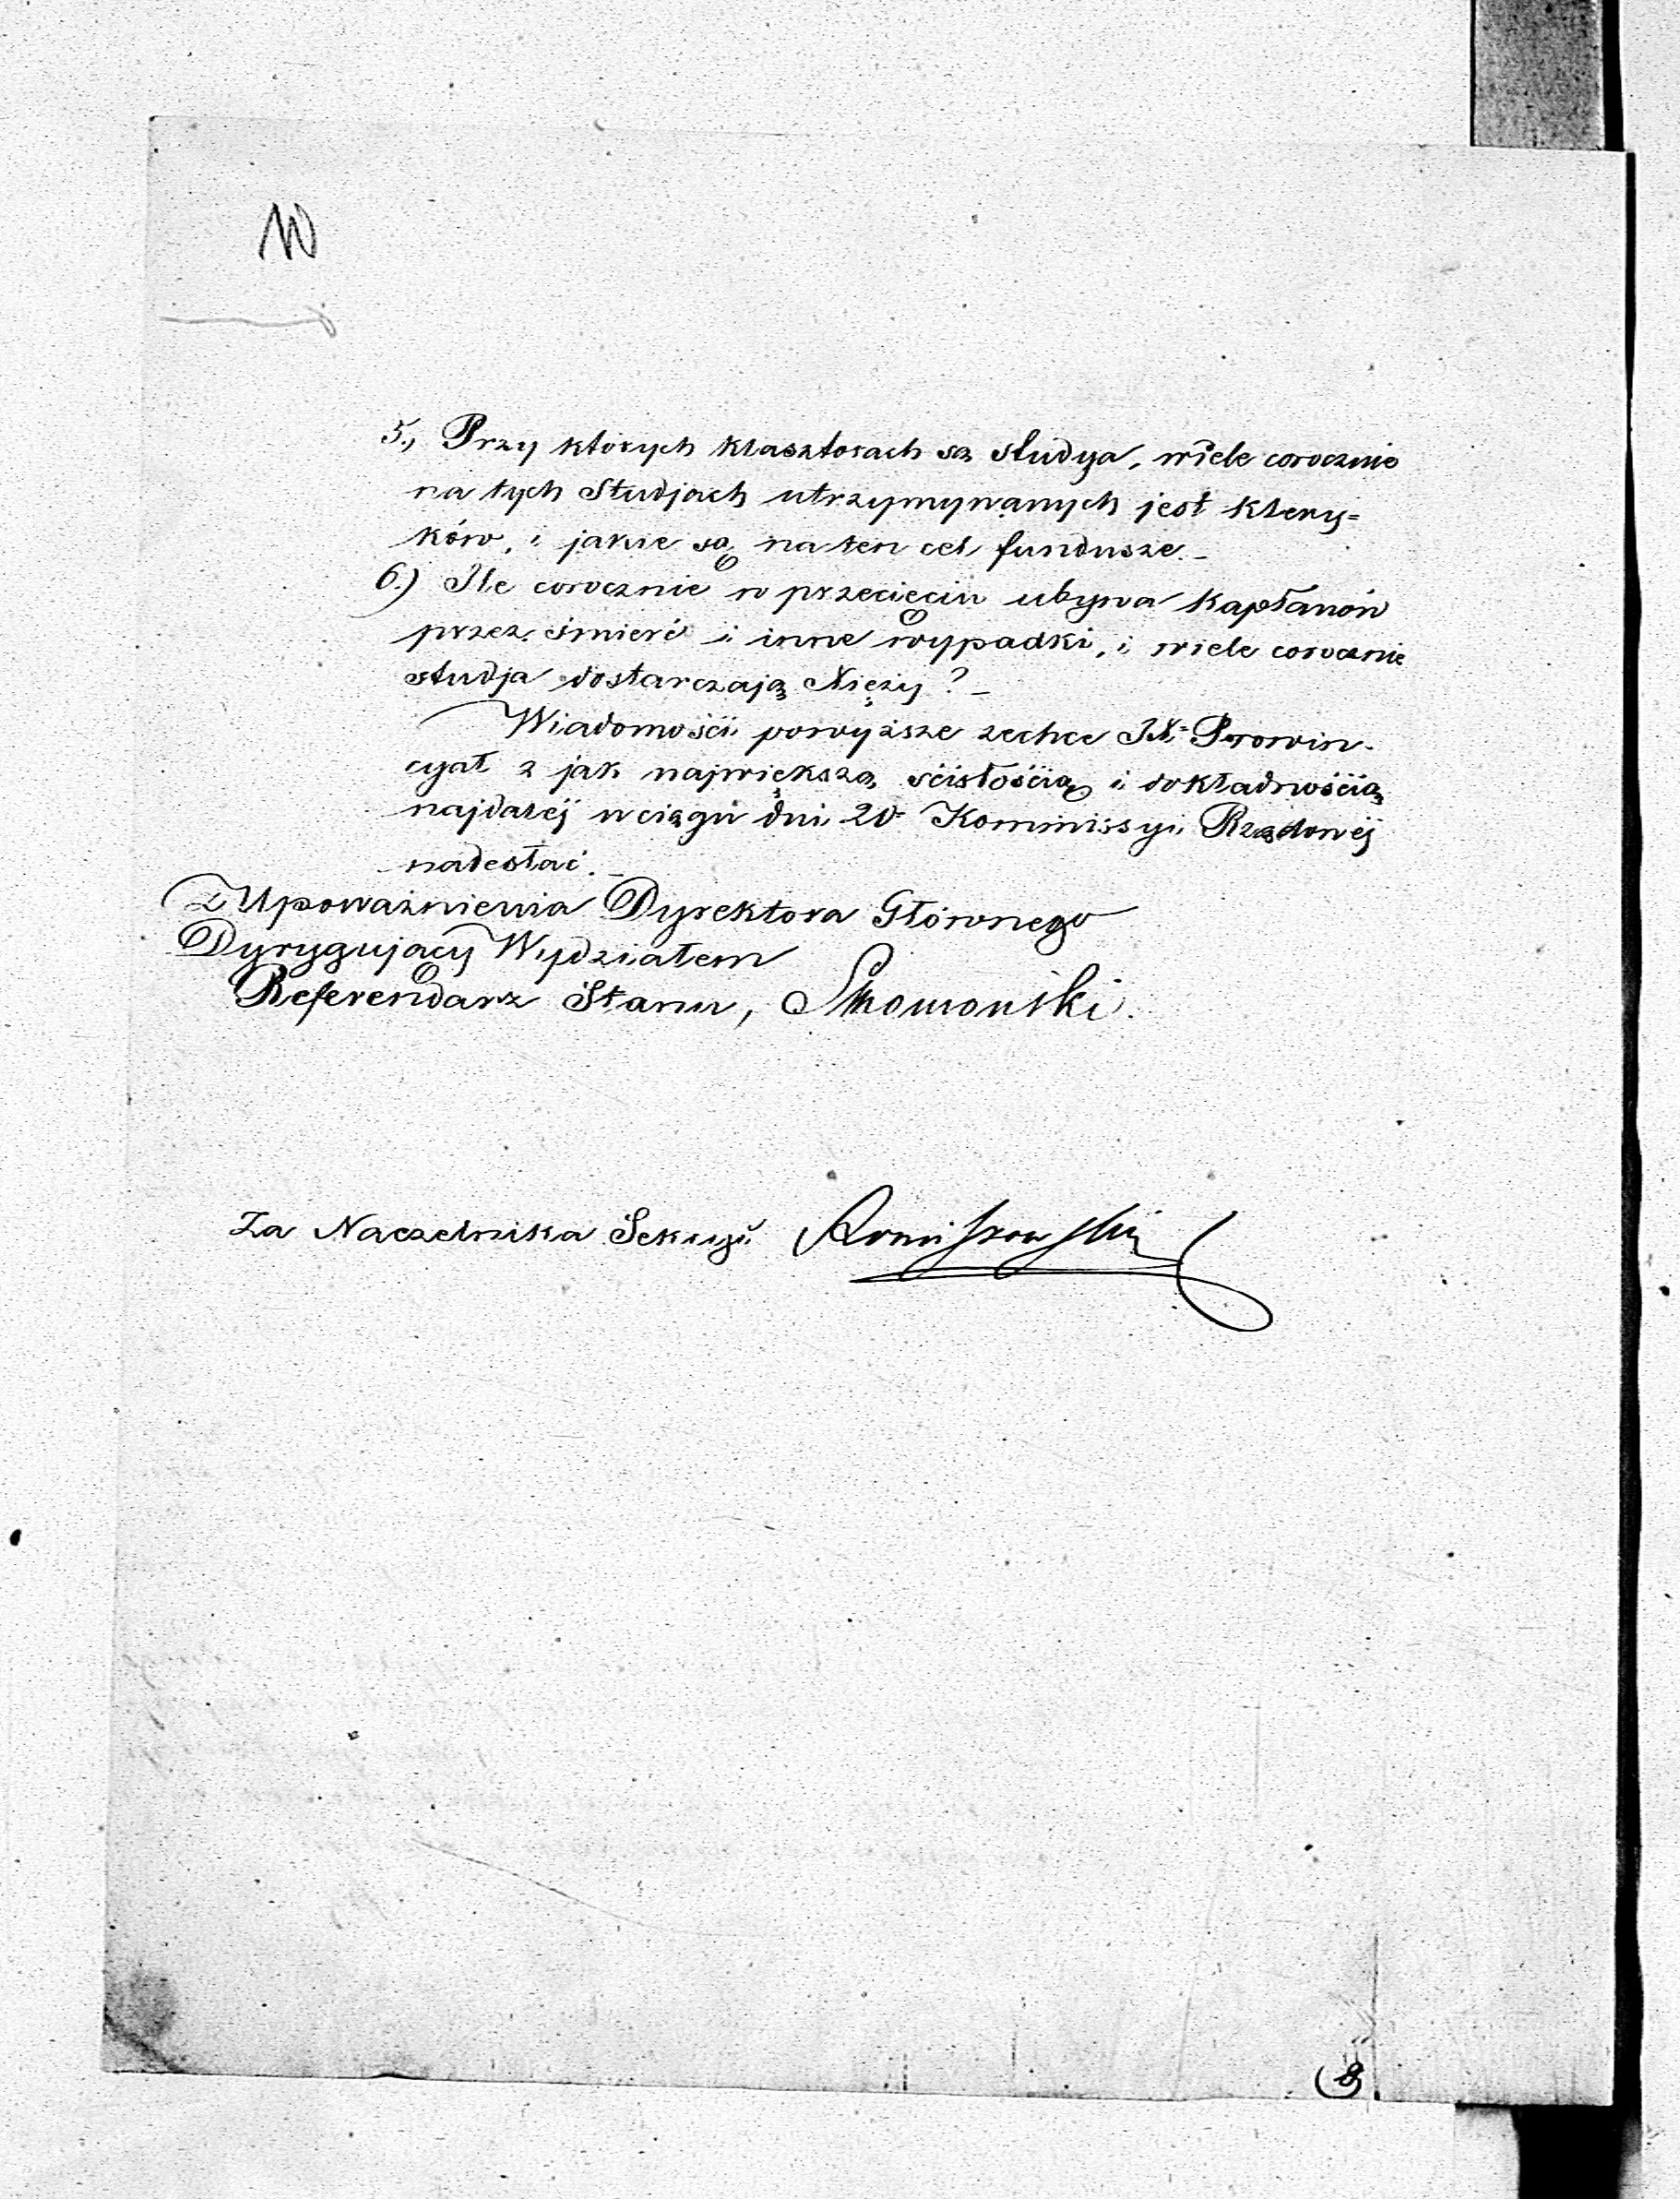 10
5., Przy których klasztorach są studya, wiele corocznie
na tych Studjach utrzymywanych jest klery=
ków, i jakie są na ten cel fundusze._
6.) Ile corocznie w przecięciu ubywa kapłanów
przez śmierć i inne wypadki, i wiele corocznie
studja dostarczają Xięży?_
Wiadomości powyższe zechce JX. Prowin-
cyał z jak największą ścisłością i dokładnością
najdaléj w ciągu dni 20 Kommissyi Rządowéj
nadesłać._
z Upoważnienia Dyrektora Głównego
Dyrygujący Wydziałem
Referendarz Stanu,
Za Naczelnika Sekcyi
8